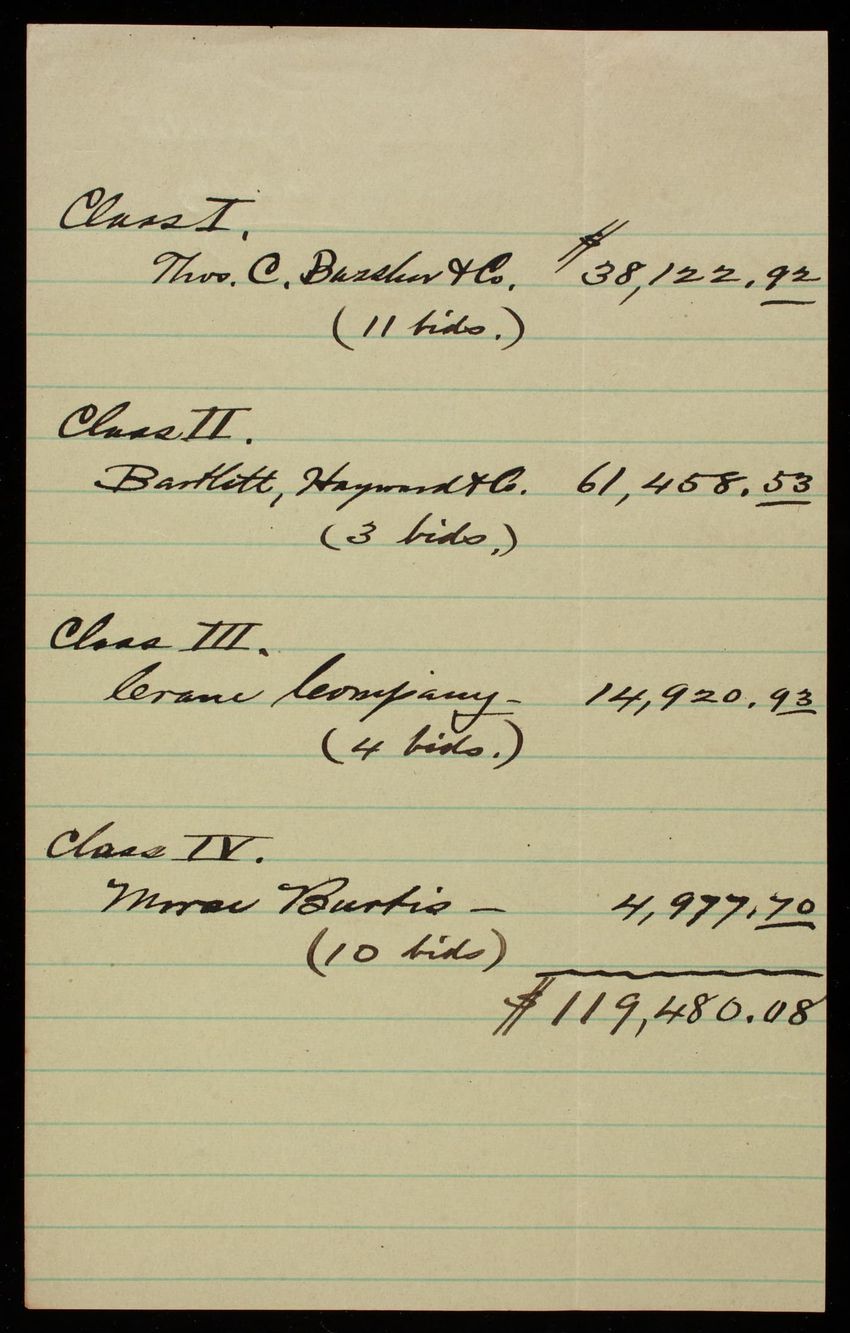 Class I.
Thos. C. Basshor & Co. $38,122.92
(11 bids.)
Class II.
Bartlett, Hayward & Co. 61,458.53
(3 bids.)
Class III.
Crane Company - 14,920.93
(4 bids.)
Class IV.
Morse Burtis - 4,977.70
(10 bids)
$119,480.08